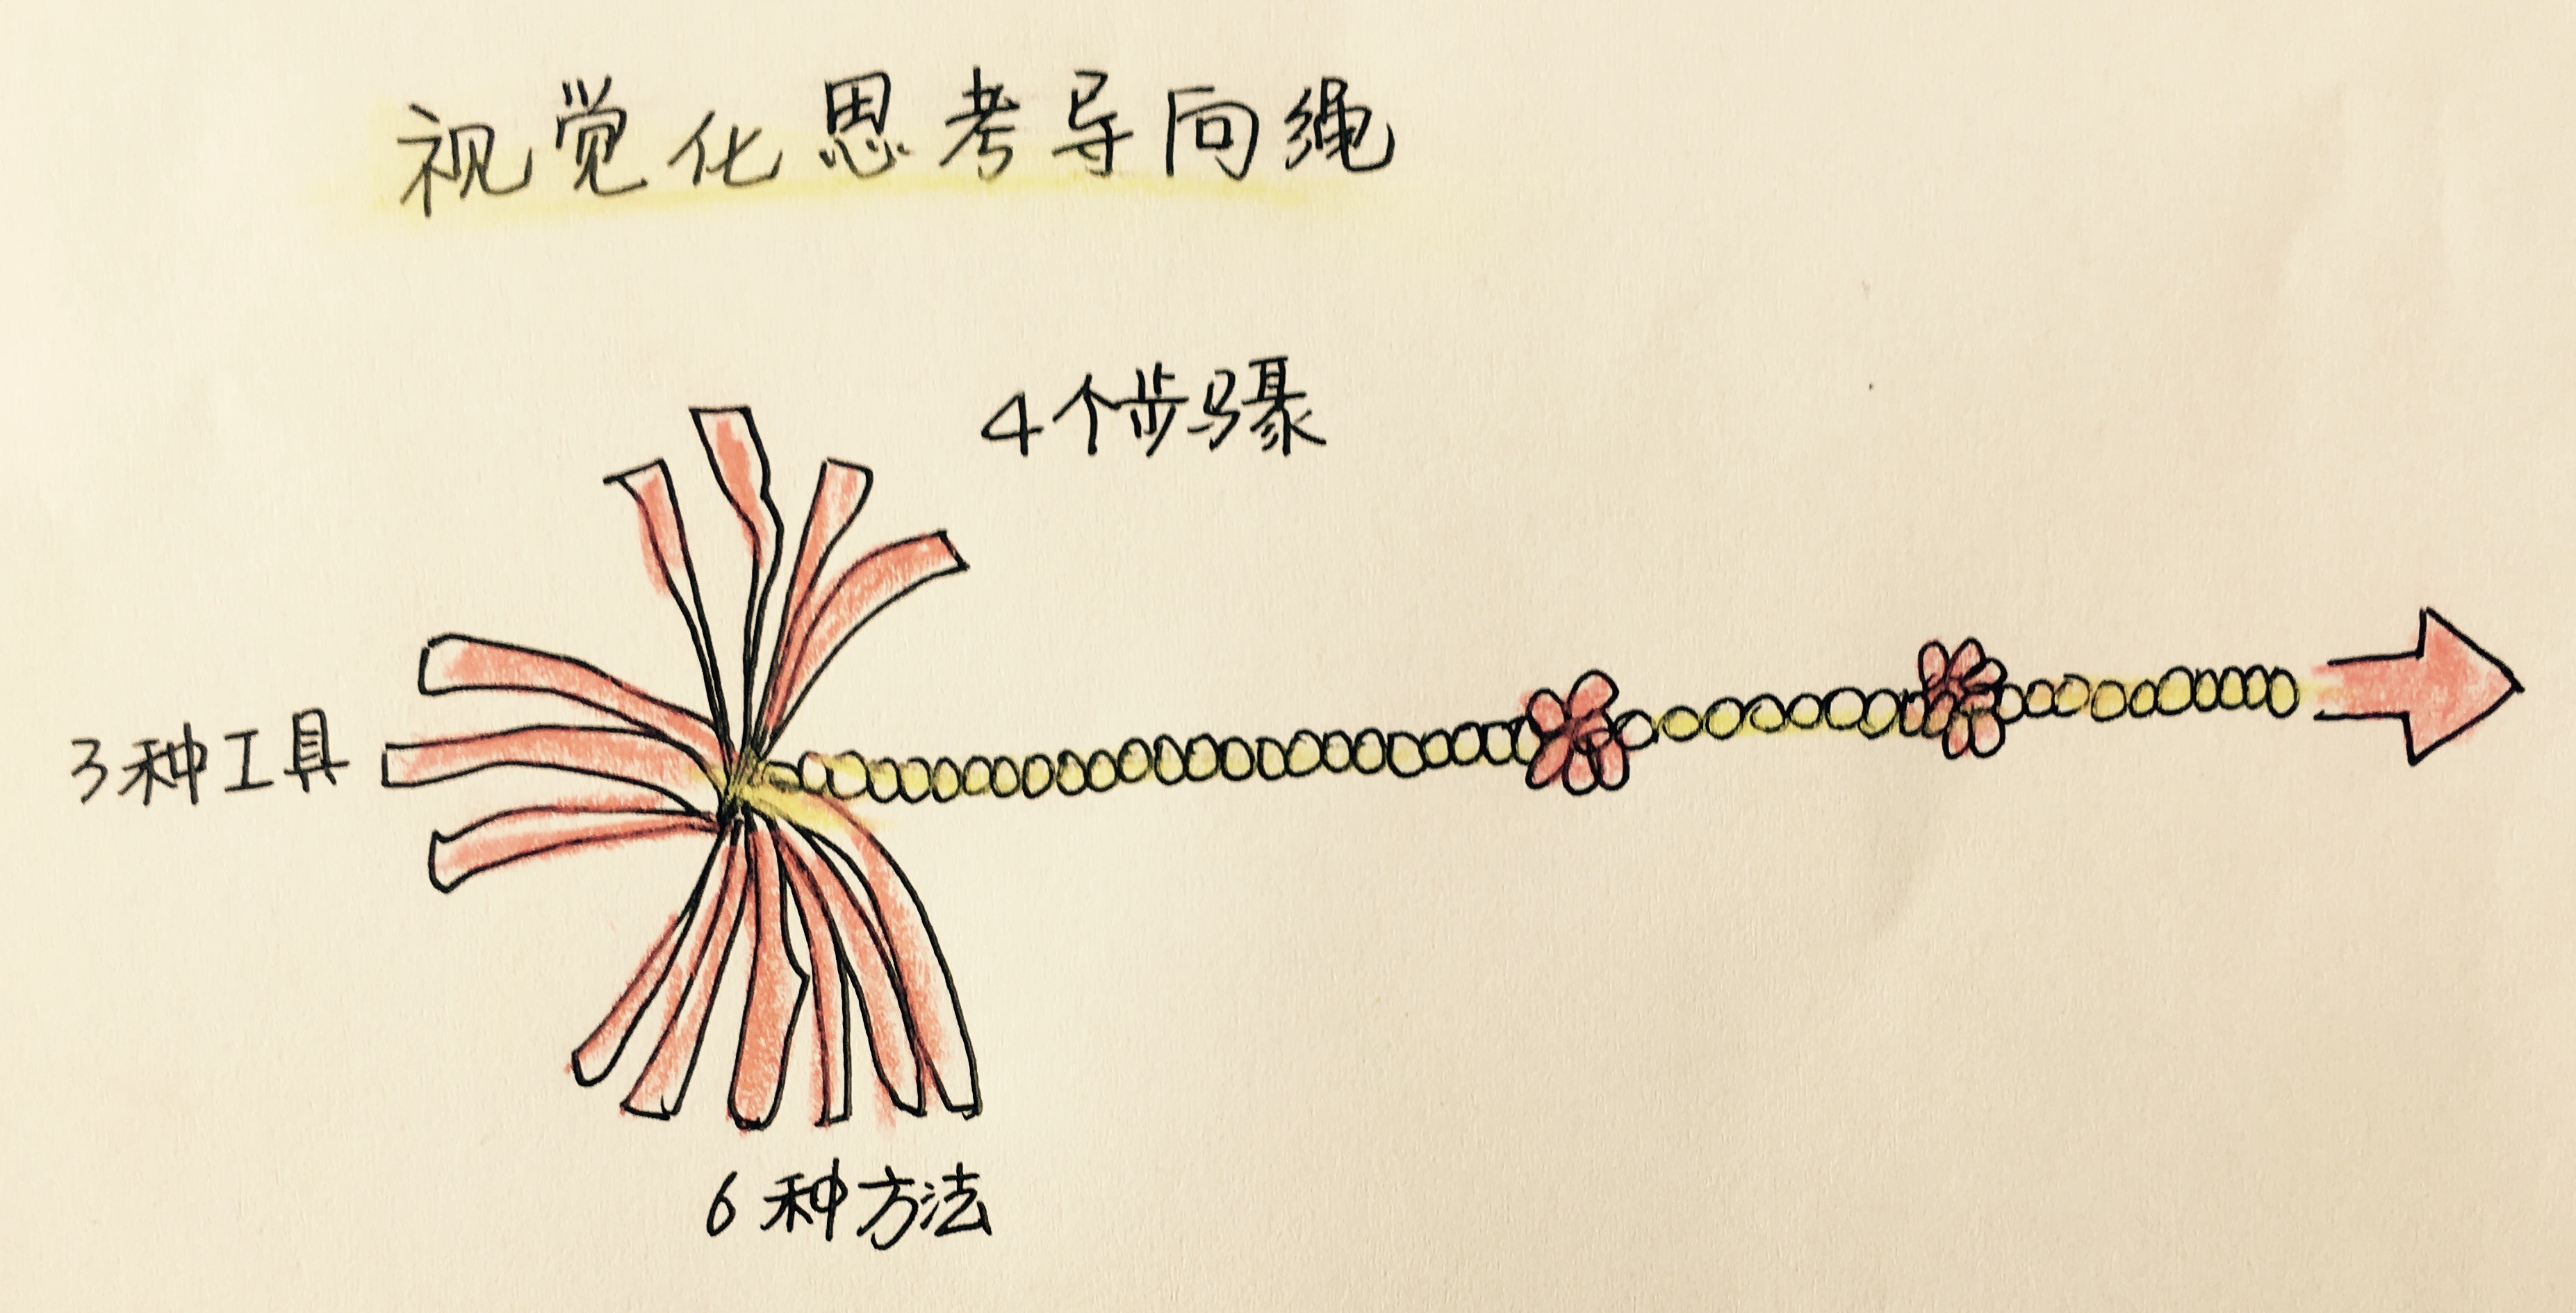 视觉化思考导向绳
4个步骤
3种工具
6种方法